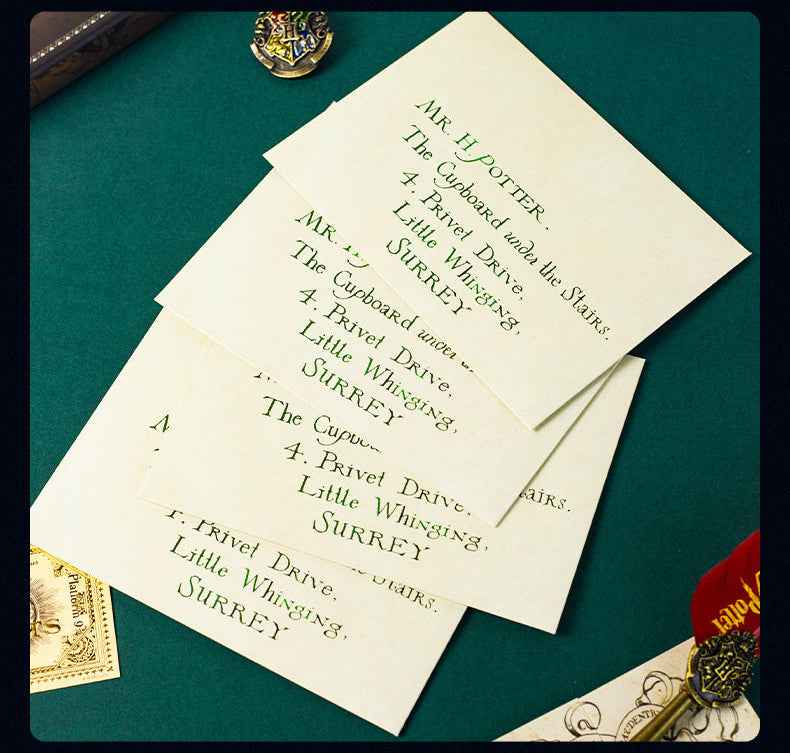 MR. H. POTTER.
The Cupboard under the Stairs.
4. Privet Drive,
Little Whinging,
SURREY
MR. H
The Cupboard under
4. Privet Drive,
Little Whinging,
SURREY
The Cupb
tairs.
4. Privet Drive,
Little Whinging,
SURREY
Stairs.
Privet Drive,
Little Whinging,
SURREY
Platform 9
Potter